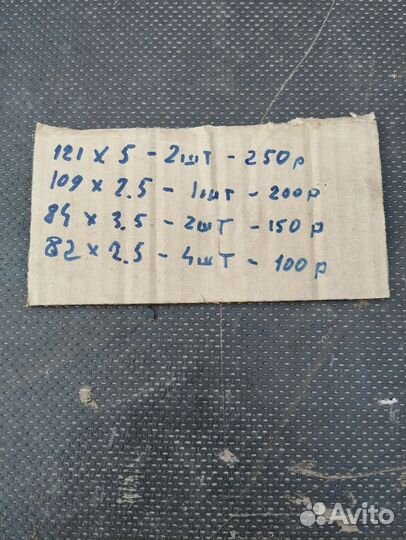 121 x 5 - 2шт - 250р
109 x 2.5 - 1шт - 200р
84 x 3.5 - 2шт - 150р
82 x 2.5 - 4шт - 100р
Avito